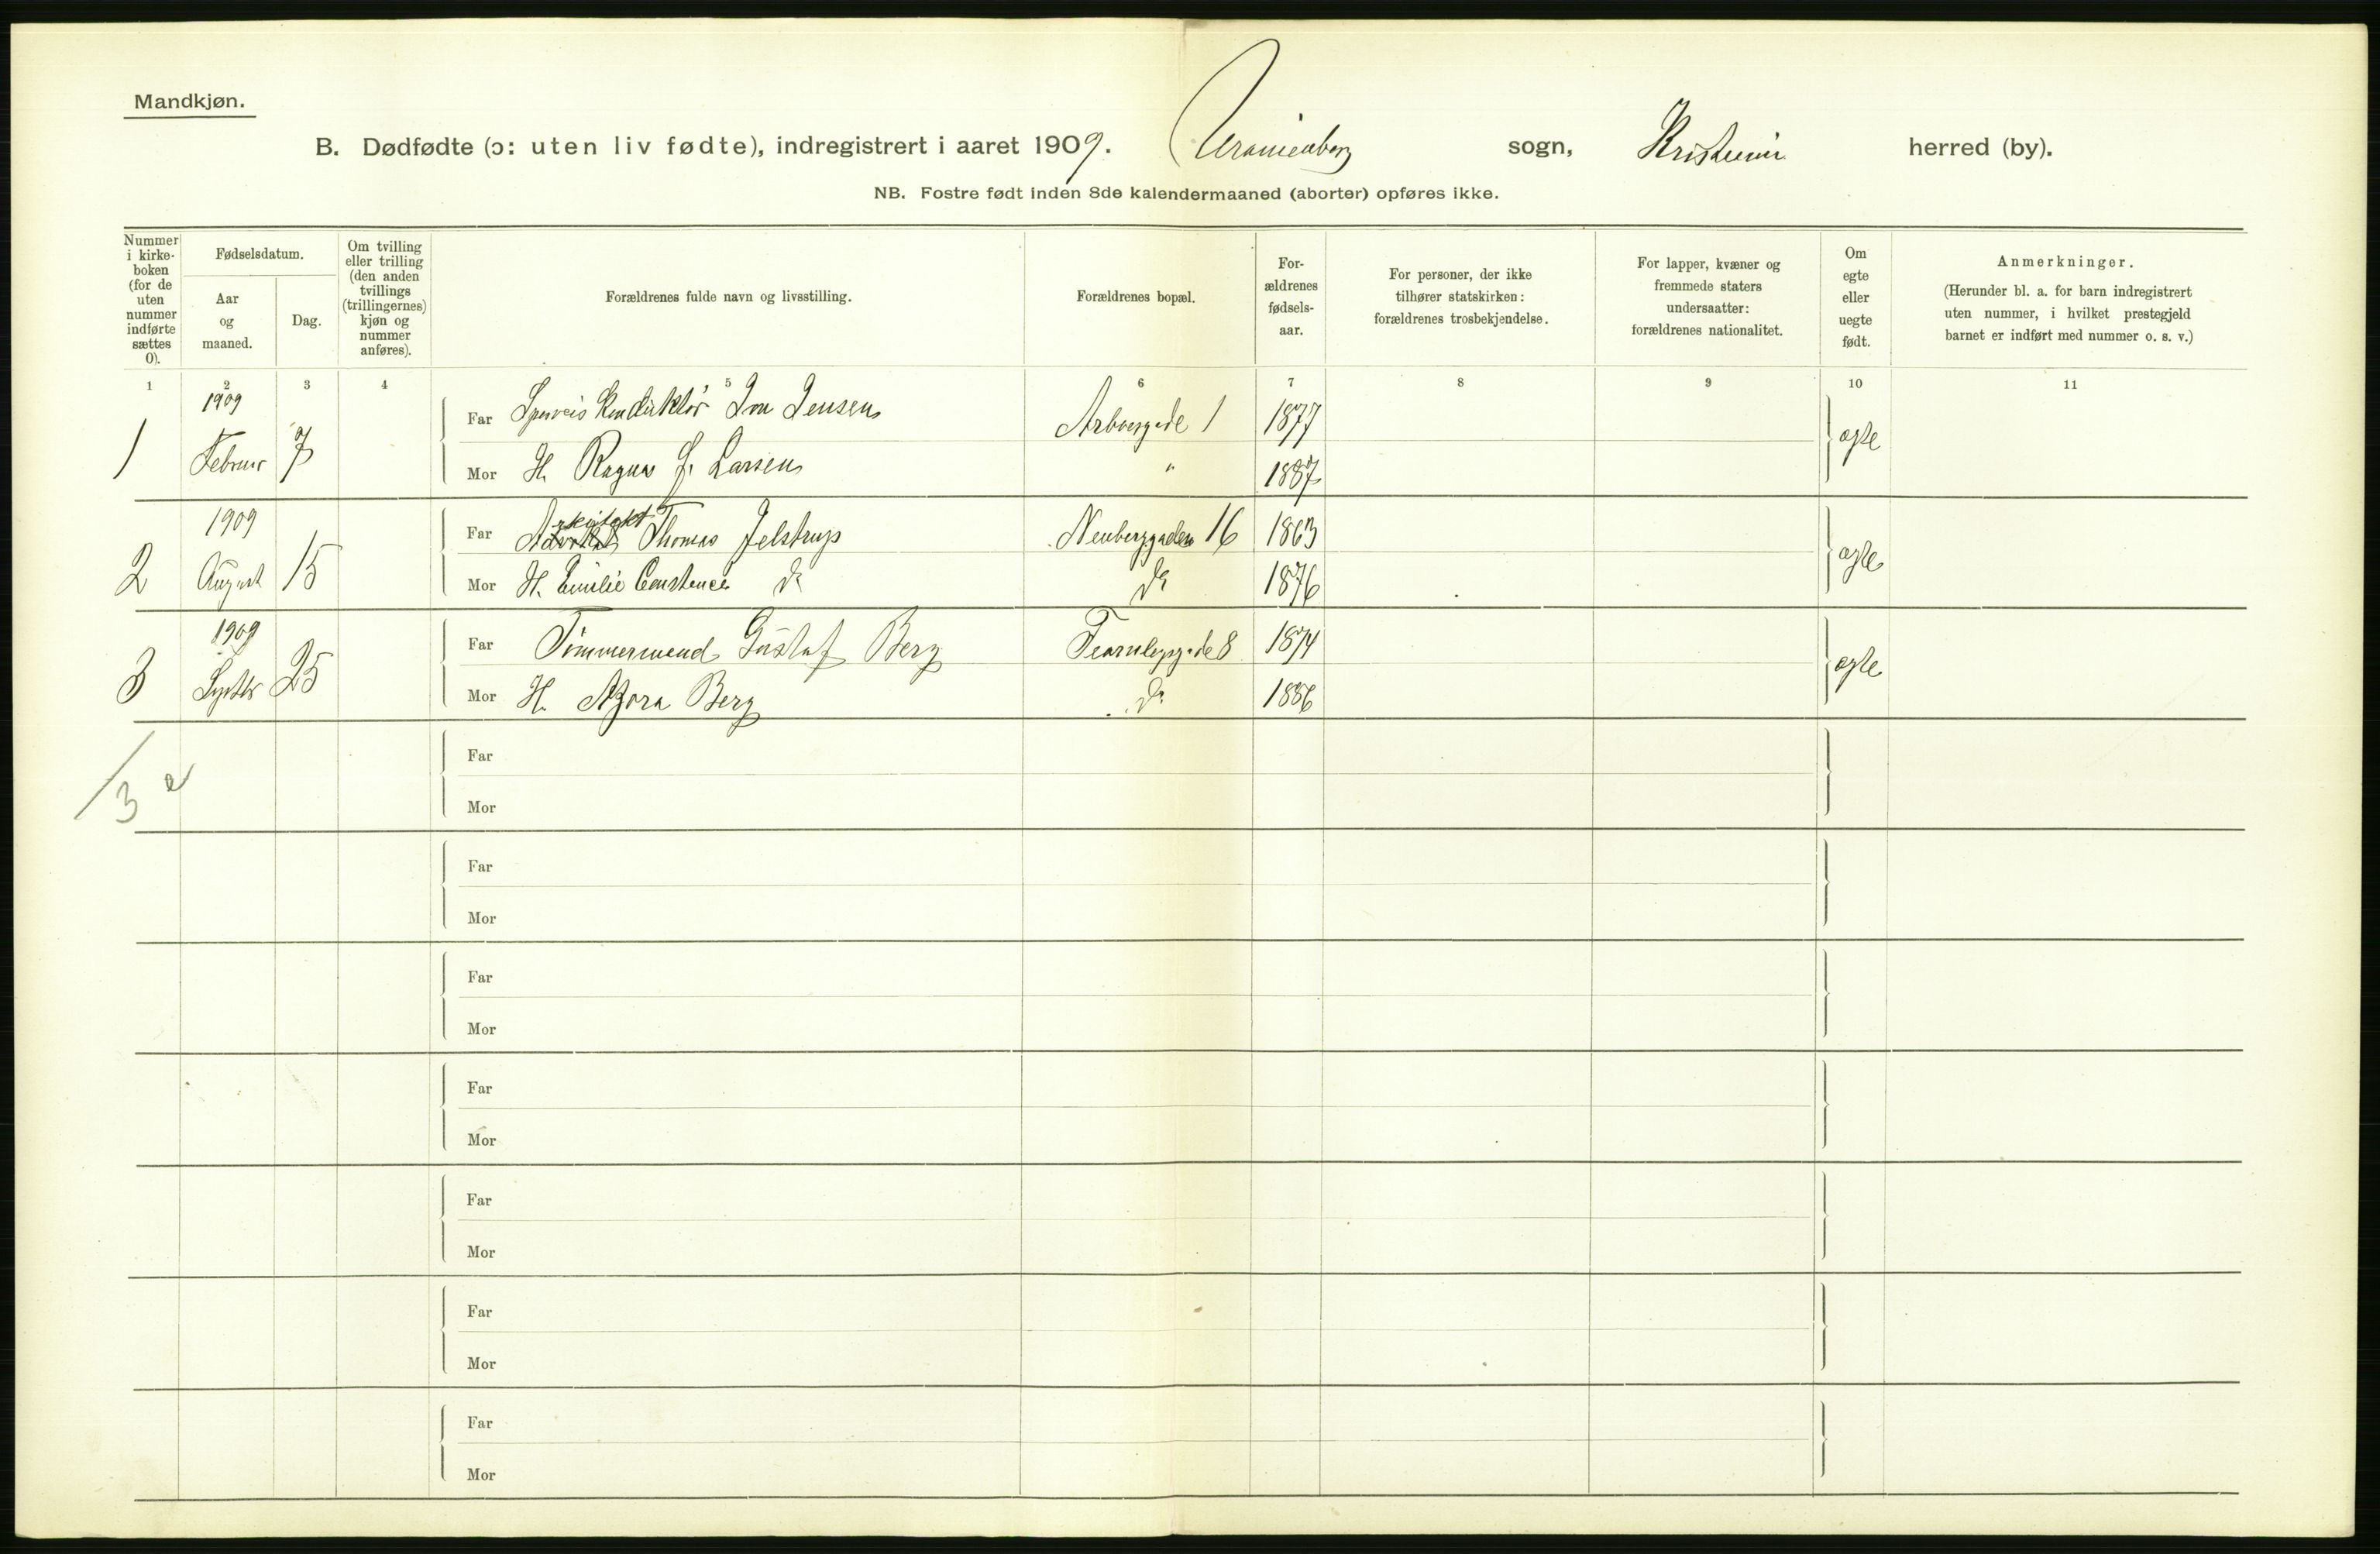 Mandkjøn.
B. Dødfødte (ɔ: uten liv fødte), indregistrert i aaret 1909. Uranienborg sogn, Kristiania herred (by).
NB. Fostre født inden 8de kalendermaaned (aborter) opføres ikke.
Nummer
i kirke-
boken
(for de
uten
nummer
indførte
sættes
0).
Fødselsdatum.
Aar
og
maaned.
Dag.
Om tvilling
eller trilling
(den anden
tvillings
(trillingernes)
kjøn og
nummer
anføres).
Forældrenes fulde navn og livsstilling.
Forældrenes bopæl.
For-
ældrenes
fødsels-
aar.
For personer, der ikke
tilhører statskirken:
forældrenes trosbekjendelse.
For lapper, kvæner og
fremmede staters
undersaatter:
forældrenes nationalitet.
Om
egte
eller
uegte
født.
Anmerkninger.
(Herunder bl. a. for barn indregistrert
uten nummer, i hvilket prestegjeld
barnet er indført med nummer o. s. v.)
1 2 3 4 5 6 7 8 9 10 11
1909
1 Februar 7
Far Sporveis Konduktør Jensen 1 1877
Mor H. Ragna Larsen " 1887
ægte
1909
2 August 15
Arkitekt
Far Thomas Jelstrup Neuberggaden 16 1863
Mor H. Emilie Constance do do 1876
ægte
1909
3 Septbr 25
Far Tømmermand Gustaf Berg Fearnleysgade 8 1874
Mor H. Berg do 1886
ægte
3
Far
Mor
Far
Mor
Far
Mor
Far
Mor
Far
Mor
Far
Mor
Far
Mor